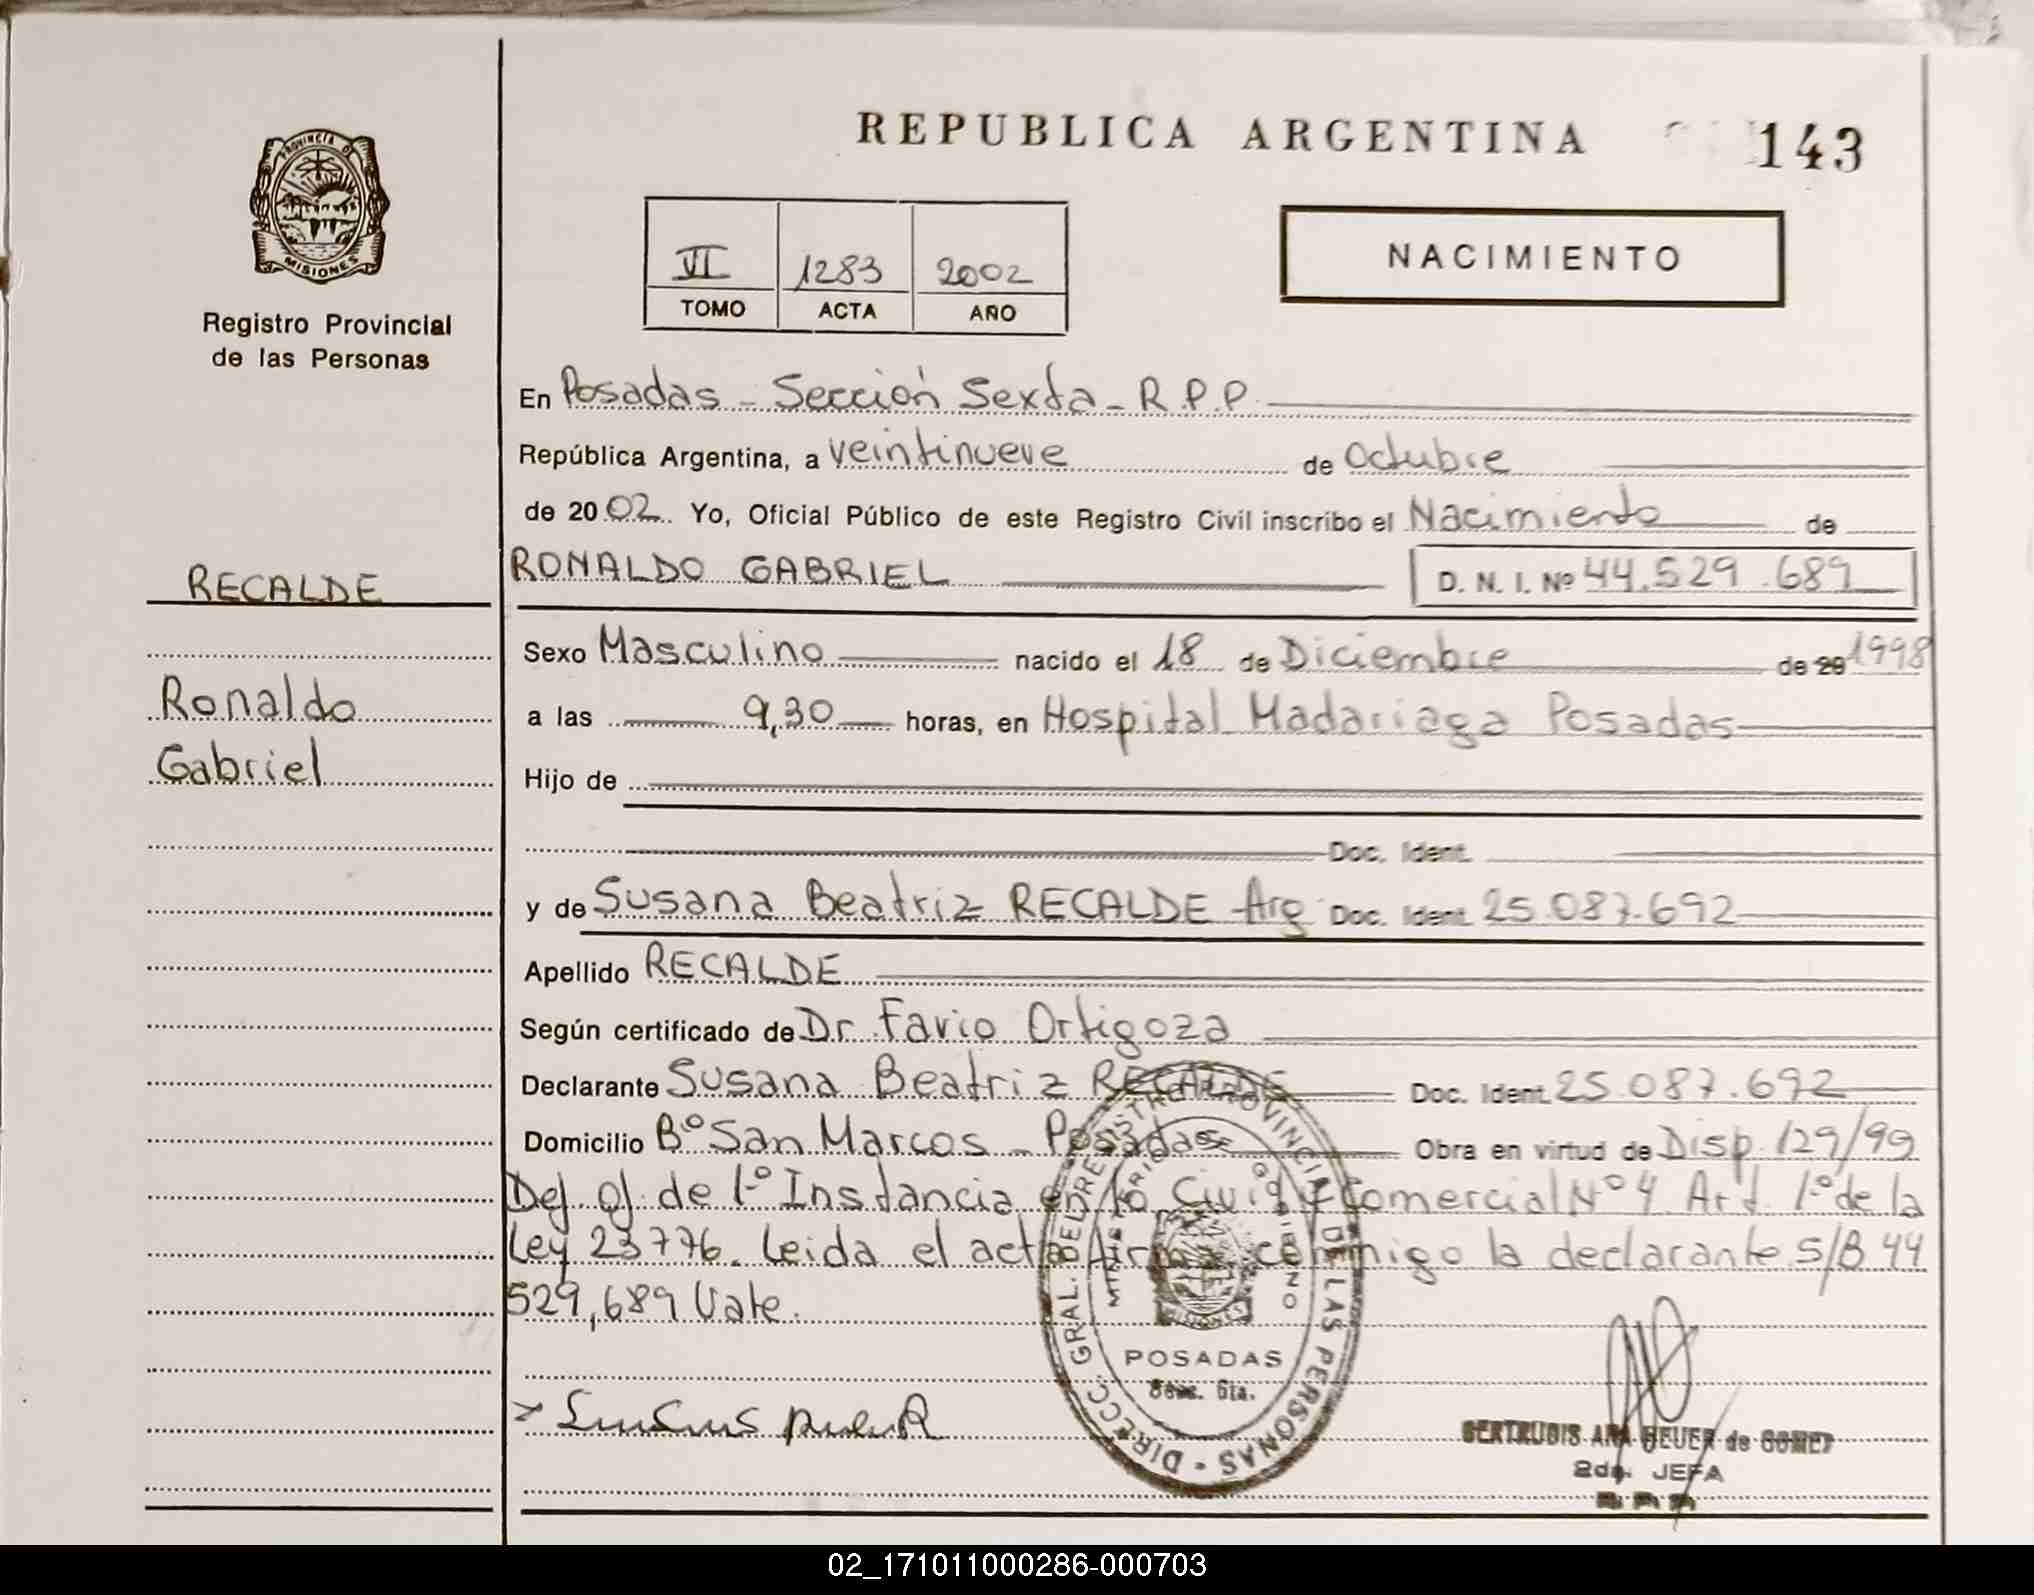 REPUBLICA ARGENTINA
143
PROVINCIA DE
MISIONES
Registro Provincial
de las Personas
VI 1283 2002
TOMO ACTA AÑO
NACIMIENTO
En Posadas - Sección Sexta - R.P.P.
República Argentina, a veintinueve de Octubre
de 2002 Yo, Oficial Público de este Registro Civil inscribo el Nacimiento de
RECALDE
Ronaldo
Gabriel
RONALDO GABRIEL D. N. I. Nº 44.529.689
Sexo Masculino nacido el 18 de Diciembre de 20 1998
a las 9,30 horas, en Hospital Madariaga Posadas
Hijo de
Doc. Ident.
y de Susana Beatriz RECALDE Arg. Doc. Ident. 25.087.692
Apellido RECALDE
Según certificado de Dr. Favio Ortigoza
Declarante Susana Beatriz RECALDE Doc. Ident. 25.087.692
Domicilio Bº San Marcos - Posadas Obra en virtud de Disp. 129/99
Def. of. de 1º Instancia en lo Civil y Comercial Nº 4 Art. 1º de la
Ley 23776. Leida el acta firma conmigo la declarante S/B 44
529,689 Vale.
DIRECC. GRAL. DEL REGISTRO PROVINCIAL DE LAS PERSONAS
MINISTERIO DE GOBIERNO
POSADAS
Secc. 6ta.
GERTRUDIS ANA BEUER de GOMEZ
2da. JEFA
02_171011000286-000703